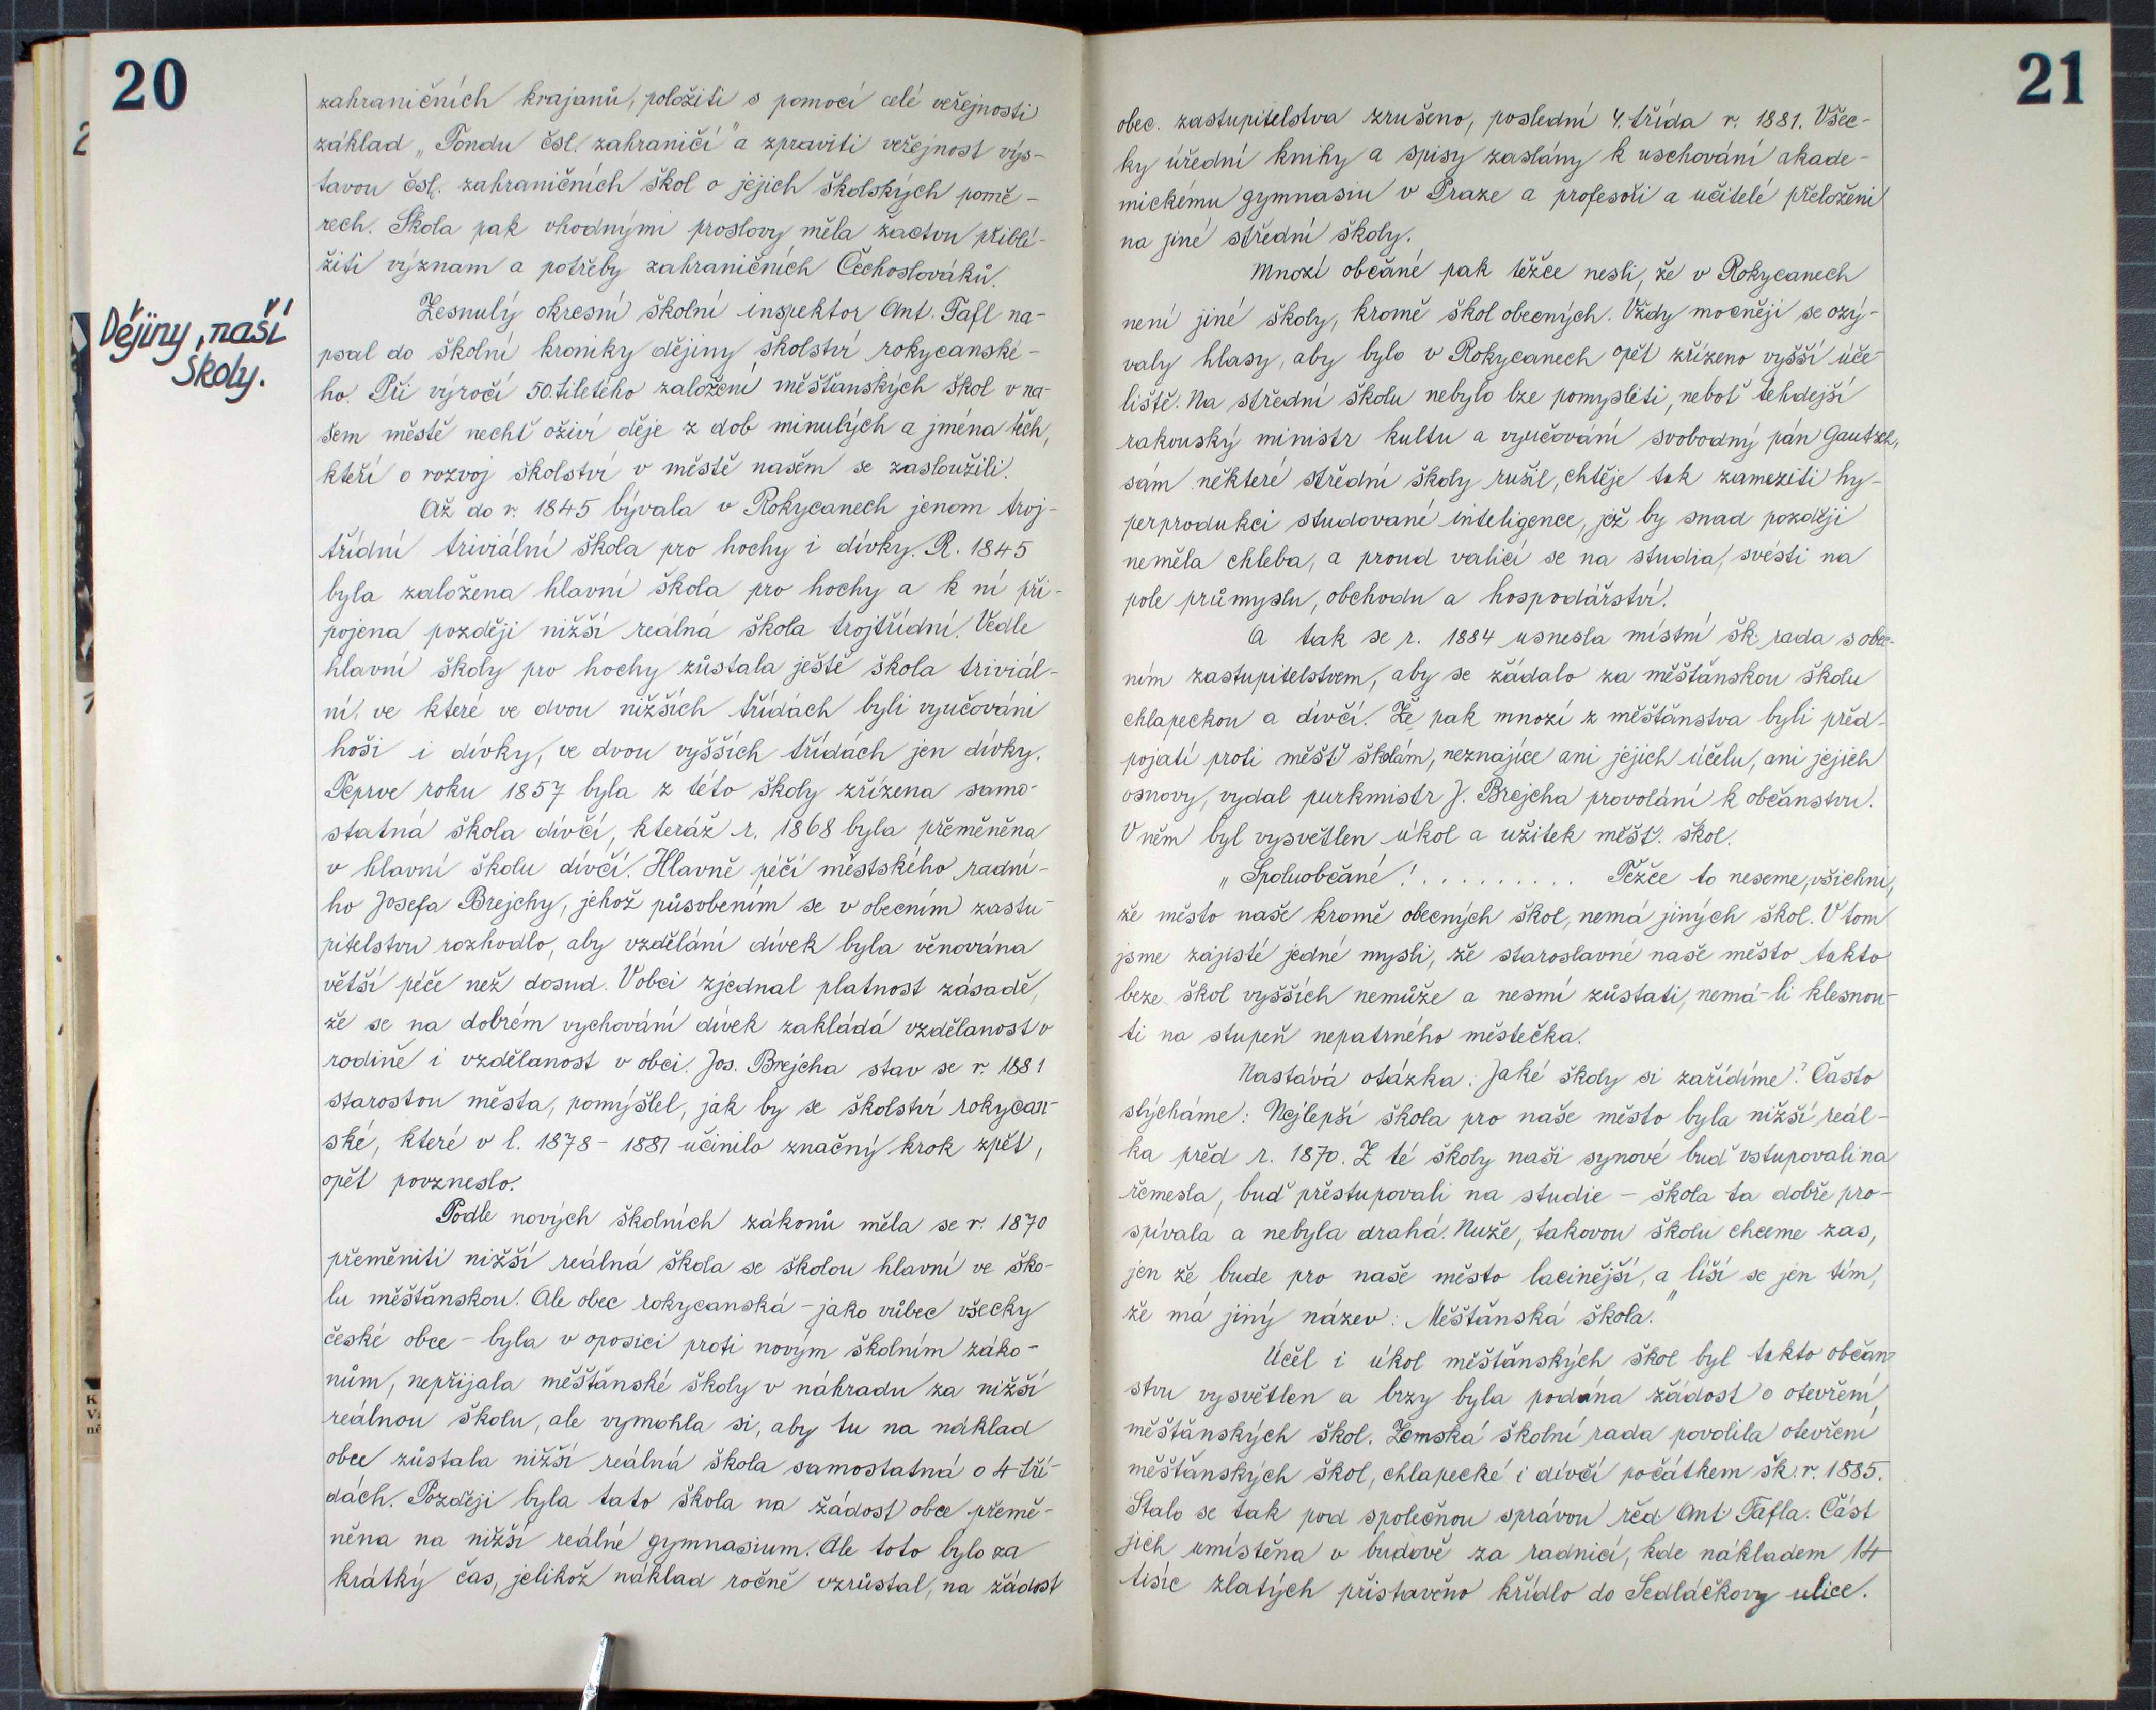 20
zahraničních krajanů, položiti s pomocí celé veřejnosti
základ „Fondu čsl. zahraničí" a zpraviti veřejnost výs-
tavou čsl. zahraničních škol o jejich školských pomě-
rech. Škola pak vhodnými proslovy měla žactvu přiblí-
žiti význam a potřeby zahraničních Čechoslováků.
Dějiny naší
školy.
Zesnulý okresní školní inspektor Ant. Tafl na-
psal do školní kroniky dějiny školství rokycanské-
ho. Při výročí 50.tiletého založení měšťanských škol v na-
šem městě nechť oživí děje z dob minulých a jména těch,
kteří o rozvoj školství v městě našem se zasloužili.
Až do r. 1845 bývala v Rokycanech jenom troj-
třídní triviální škola pro hochy i dívky. R. 1845
byla založena hlavní škola pro hochy a k ní při-
pojena později nižší reálná škola trojtřídní. Vedle
hlavní školy pro hochy zůstala ještě škola triviál-
ní, ve které ve dvou nižších třídách byli vyučováni
hoši i dívky, ve dvou vyšších třídách jen dívky.
Teprve roku 1857 byla z této školy zřízena samo-
statná škola dívčí, kteráž r. 1868 byla přeměněna
v hlavní školu dívčí. Hlavně péčí městského radní-
ho Josefa Brejchy, jehož působením se v obecním zastu-
pitelstvu rozhodlo, aby vzdělání dívek byla věnována
větší péče než dosud. V obci zjednal platnost zásadě,
že se na dobrém vychování dívek zakládá vzdělanost v
rodině i vzdělanost v obci. Jos. Brejcha stav se r. 1881
starostou města, pomýšlel, jak by se školství rokycan-
ské, které v l. 1878 - 1881 učinilo značný krok zpět,
opět povzneslo.
Podle nových školních zákonů měla se r. 1870
přeměniti nižší reálná škola se školou hlavní ve ško-
lu měšťanskou. Ale obec rokycanská - jako vůbec všecky
české obce - byla v oposici proti novým školním záko-
nům, nepřijala měšťanské školy v náhradu za nižší
reálnou školu, ale vymohla si, aby tu na náklad
obce zůstala nižší reálná škola samostatná o 4 tří-
dách. Později byla tato škola na žádost obce přemě-
něna na nižší reálné gymnasium. Ale toto bylo za
krátký čas, jelikož náklad ročně vzrůstal, na žádost
21
obec. zastupitelstva zrušeno, poslední 4. třída r. 1881. Všec-
ky úřední knihy a spisy zaslány k uschování akade-
mickému gymnasiu v Praze a profesoři a učitelé přeloženi
na jiné střední školy.
Mnozí občané pak těžce nesli, že v Rokycanech
není jiné školy, kromě škol obecných. Vždy mocněji se ozý-
valy hlasy, aby bylo v Rokycanech opět zřízeno vyšší uče-
liště. Na střední školu nebylo lze pomysliti, neboť tehdejší
rakouský ministr kultu a vyučování svobodný pán Gautsch,
sám některé střední školy rušil, chtěje tak zameziti hy-
perprodukci studované inteligence, jež by snad později
neměla chleba, a proud valící se na studia, svésti na
pole průmyslu, obchodu a hospodářství.
A tak se r. 1884 usnesla místní šk. rada s obec-
ním zastupitelstvem, aby se žádalo za měšťanskou školu
chlapeckou a dívčí. Že pak mnozí z měšťanstva byli před-
pojatí proti měšť. školám, neznajíce ani jejich účelu, ani jejich
osnovy, vydal purkmistr J. Brejcha provolání k občanstvu.
V něm byl vysvětlen úkol a užitek měšť. škol.
„Spoluobčané! . . . . . . . . . . Těžce to neseme, všichni,
že město naše kromě obecných škol, nemá jiných škol. V tom
jsme zajisté jedné mysli, že staroslavné naše město takto
beze škol vyšších nemůže a nesmí zůstati, nemá-li klesnou-
ti na stupeň nepatrného městečka.
Nastává otázka: Jaké školy si zařídíme? Často
slýcháme: Nejlepší škola pro naše město byla nižší reál-
ka před r. 1870. Z té školy naši synové buď vstupovali na
řemesla, buď přestupovali na studie - škola ta dobře pro-
spívala a nebyla drahá. Nuže, takovou školu chceme zas,
jen že bude pro naše město lacinější, a liší se jen tím,
že má jiný název: Měšťanská škola."
Účel i úkol měšťanských škol byl takto občan-
stvu vysvětlen a brzy byla podána žádost o otevření
měšťanských škol. Zemská školní rada povolila otevření
měšťanských škol, chlapecké i dívčí počátkem šk. r. 1885.
Stalo se tak pod společnou správou řed. Ant. Tafla. Část
jich umístěna v budově za radnicí, kde nákladem 14
tisíc zlatých přistavěno křídlo do Sedláčkovy ulice.